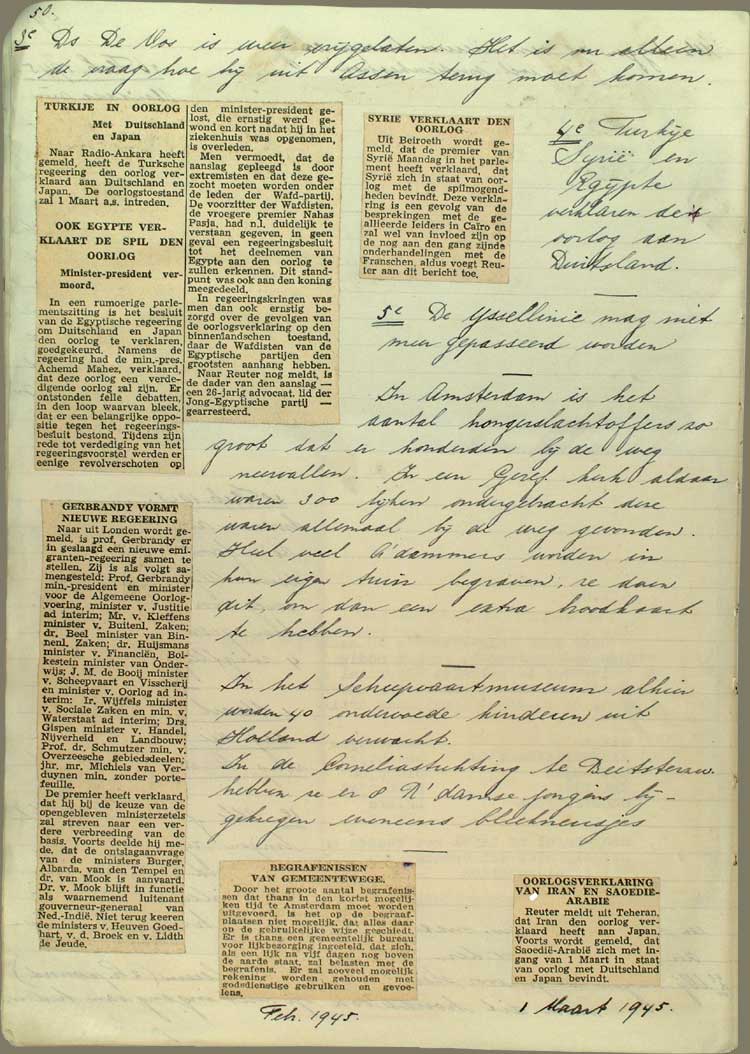 50.
3e Ds De Vos is weer vrijgelaten. Het is nu alleen
de vraag hoe hij uit Assen terug moet komen.
TURKIJE IN OORLOG
Met Duitschland
en Japan
Naar Radio-Ankara heeft
gemeld, heeft de Turksche
regeering den oorlog ver-
klaard aan Duitschland en
Japan. De oorlogstoestand
zal 1 Maart a.s. intreden.
OOK EGYPTE VER-
KLAART DE SPIL DEN
OORLOG
Minister-president ver-
moord.
In een rumoerige parle-
mentszitting is het besluit
van de Egyptische regeering
om Duitschland en Japan
den oorlog te verklaren,
goedgekeurd. Namens de
regeering had de min.-pres.
Achemd Mahez, verklaard,
dat deze oorlog een verde-
digende oorlog zal zijn. Er
ontstonden felle debatten,
in den loop waarvan bleek,
dat er een belangrijke oppo-
sitie tegen het regeerings-
besluit bestond. Tijdens zijn
rede tot verdediging van het
regeeringsvoorstel werden er
eenige revolverschoten op
den minister-president ge-
lost, die ernstig werd ge-
wond en kort nadat hij in het
ziekenhuis was opgenomen,
is overleden.
Men vermoedt, dat de
aanslag gepleegd is door
extremisten en dat deze ge-
zocht moeten worden onder
de leden der Wafd-partij.
De voorzitter der Wafdisten,
de vroegere premier Nahas
Pasja, had n.l. duidelijk te
verstaan gegeven, in geen
geval een regeeringsbesluit
tot het deelnemen van
Egypte aan den oorlog te
zullen erkennen. Dit stand-
punt was ook aan den koning
meegedeeld.
In regeeringskringen was
men dan ook ernstig be-
zorgd over de gevolgen van
de oorlogsverklaring op den
binnenlandschen toestand,
daar de Wafdisten van de
Egyptische partijen den
grootsten aanhang hebben.
Naar Reuter nog meldt, is
de dader van den aanslag —
een 26-jarig advocaat, lid der
Jong-Egyptische partij —
gearresteerd.
SYRIE VERKLAART DEN
OORLOG
Uit Beiroeth wordt ge-
meld, dat de premier van
Syrië Maandag in het parle-
ment heeft verklaard, dat
Syrië zich in staat van oor-
log met de spilmogend-
heden bevindt. Deze verkla-
ring is een gevolg van de
besprekingen met de ge-
allieerde leiders in Caïro en
zal wel van invloed zijn op
de nog aan den gang zijnde
onderhandelingen met de
Franschen, aldus voegt Reu-
ter aan dit bericht toe.
4e Turkije
Syrië en
Egypte
verklaren de
oorlog aan
Duitsland.
5e De IJssellinie mag niet
meer gepasseerd worden
In Amsterdam is het
aantal hongerslachtoffers zo
groot dat er honderden bij de weg
neervallen. In een Geref. kerk aldaar
waren 300 lijken ondergebracht deze
waren allemaal bij de weg gevonden.
Heel veel A'dammers worden in
hun eigen tuin begraven, ze doen
dit, om dan een extra broodkaart
te hebben.
GERBRANDY VORMT
NIEUWE REGEERING
Naar uit Londen wordt ge-
meld, is prof. Gerbrandy er
in geslaagd een nieuwe emi-
granten-regeering samen te
stellen. Zij is als volgt sa-
mengesteld: Prof. Gerbrandy
min.-president en minister
voor de Algemeene Oorlog-
voering, minister v. Justitie
ad interim; Mr. v. Kleffens
minister v. Buitenl. Zaken;
dr. Beel minister van Bin-
nenl. Zaken; dr. Huijsmans
minister v. Financiën, Bol-
kestein minister van Onder-
wijs; J. M. de Booij minister
v. Scheepvaart en Visscherij
en minister v. Oorlog ad in-
terim: Ir. Wijffels minister
v. Sociale Zaken en min. v.
Waterstaat ad interim; Drs.
Gispen minister v. Handel,
Nijverheid en Landbouw;
Prof. dr. Schmutzer min. v.
Overzeesche gebiedsdeelen;
jhr. mr. Michiels van Ver-
duynen min. zonder porte-
feuille.
De premier heeft verklaard,
dat hij bij de keuze van de
opengebleven ministerzetels
zal streven naar een ver-
dere verbreeding van de
basis. Voorts deelde hij me-
de, dat de ontslagaanvrage
van de ministers Burger,
Albarda, van den Tempel en
dr. van Mook is aanvaard.
Dr. v. Mook blijft in functie
als waarnemend luitenant
gouverneur-generaal van
Ned.-Indië. Niet terug keeren
de ministers v. Heuven Goed-
hart, v. d. Broek en v. Lidth
de Jeude.
In het Scheepvaartmuseum alhier
worden 40 ondervoede kinderen uit
Holland verwacht.
In de Corneliastichting te Beetsterzw.
hebben ze er 8 R'damse jongens bij-
gekregen eveneens bleekneusjes
BEGRAFENISSEN
VAN GEMEENTEWEGE.
Door het groote aantal begrafenis-
sen dat thans in den kortst mogelij-
ken tijd te Amsterdam moet worden
uitgevoerd, is het op de begraaf-
plaatsen niet mogelijk, dat alles daar
op de gebruikelijke wijze geschiedt.
Er is thans een gemeentelijk bureau
voor lijkbezorging ingesteld, dat zich,
als een lijk na vijf dagen nog boven
de aarde staat, zal belasten met de
begrafenis. Er zal zooveel mogelijk
rekening worden gehouden met
godsdienstige gebruiken en gevoe-
lens.
Feb. 1945.
OORLOGSVERKLARING
VAN IRAN EN SAOEDIE-
ARABIE
Reuter meldt uit Teheran,
dat Iran den oorlog ver-
klaard heeft aan Japan.
Voorts wordt gemeld, dat
Saoedië-Arabië zich met in-
gang van 1 Maart in staat
van oorlog met Duitschland
en Japan bevindt.
1 Maart 1945.